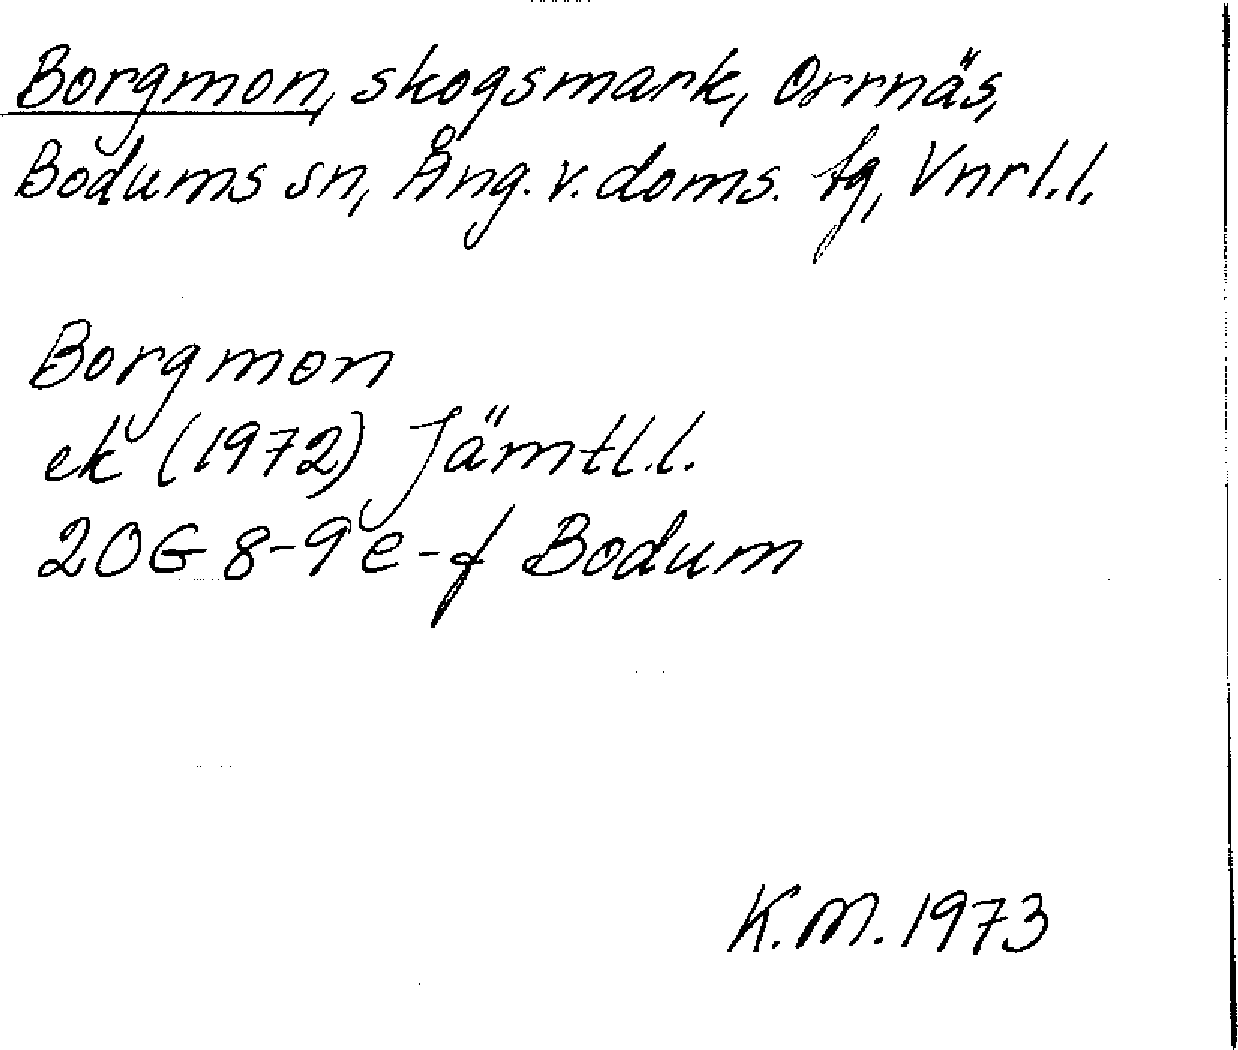 Borgmon, skogsmark, Orrnäs,
Bodums sn, Ång. v. doms. tg, Vnrl.l.
Borgmon
ek (1972) Jämtl.l.
20G 8-9 e-f Bodum
K.M. 1973